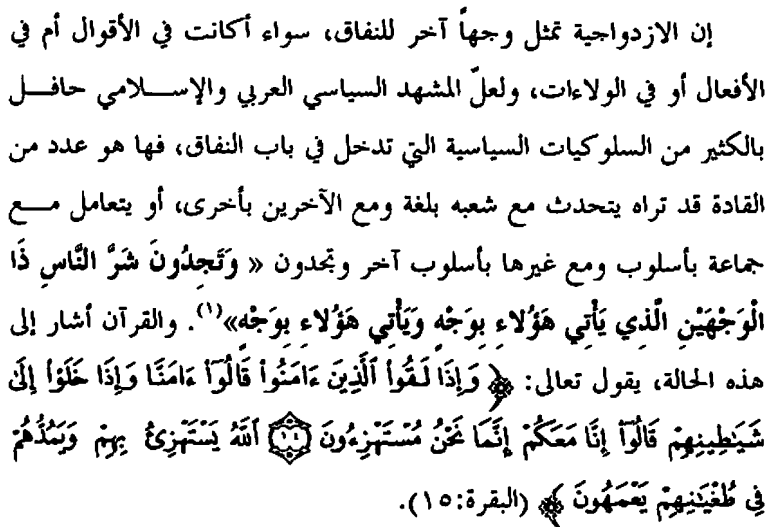 إن الازدواجية تمثل وجهاً آخر للنفاق، سواء أكانت في الأقوال أم في
الأفعال أو في الولاءات، ولعلّ المشهد السياسي العربي والإســـلامي حافــل
بالكثير من السلوكيات السياسية التي تدخل في باب النفاق، فها هو عدد من
القادة قد تراه يتحدث مع شعبه بلغة ومع الآخرين بأخرى، أو يتعامل مـــع
جماعة بأسلوب ومع غيرها بأسلوب آخر وتجدون « وَتَجِدُونَ شَرَّ النَّاسِ ذَا
الْوَجْهَيْنِ الَّذِي يَأْتِي هَؤُلاءِ بِوَجْهٍ وَيَأْتِي هَؤُلاءِ بِوَجْهٍ»(١). والقرآن أشار إلى
هذه الحالة، يقول تعالى: ﴿ وَإِذَا لَقُواْ ٱلَّذِينَ ءَامَنُواْ قَالُوٓاْ ءَامَنَّا وَإِذَا خَلَوْاْ إِلَىٰ
شَيَٰطِينِهِمْ قَالُوٓاْ إِنَّا مَعَكُمْ إِنَّمَا نَحْنُ مُسْتَهْزِءُونَ ۝١٤ ٱللَّهُ يَسْتَهْزِئُ بِهِمْ وَيَمُدُّهُمْ
فِي طُغْيَٰنِهِمْ يَعْمَهُونَ ﴾ (البقرة:١٥).